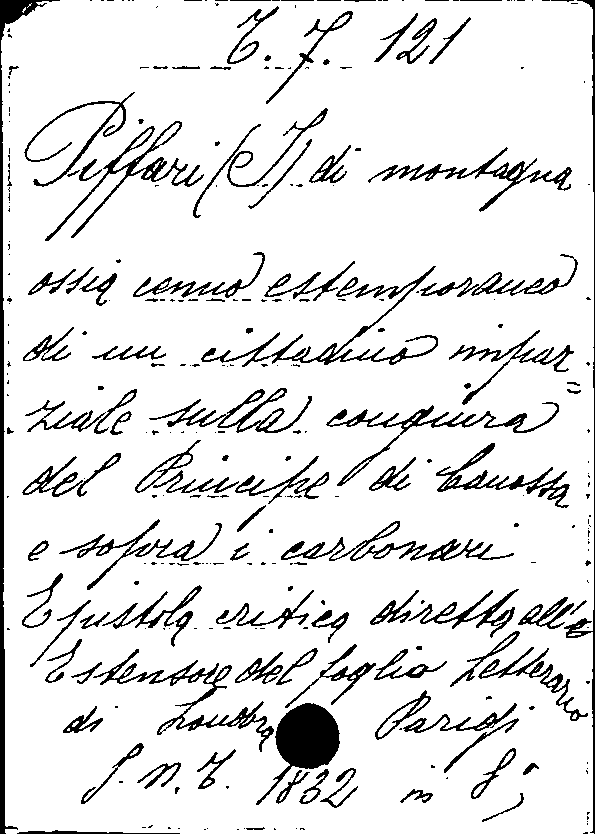 T. 7. 121
Piffari (I) di montagna
ossia cenno estemporaneo
di un cittadino impar=
ziale sulla congiura
del Principe di Canossa
e sopra i carbonari
Epistola critica diretta all'
Estensore del foglio Letterario
di Londra Parigi
S. n. T. 1832 in 8°